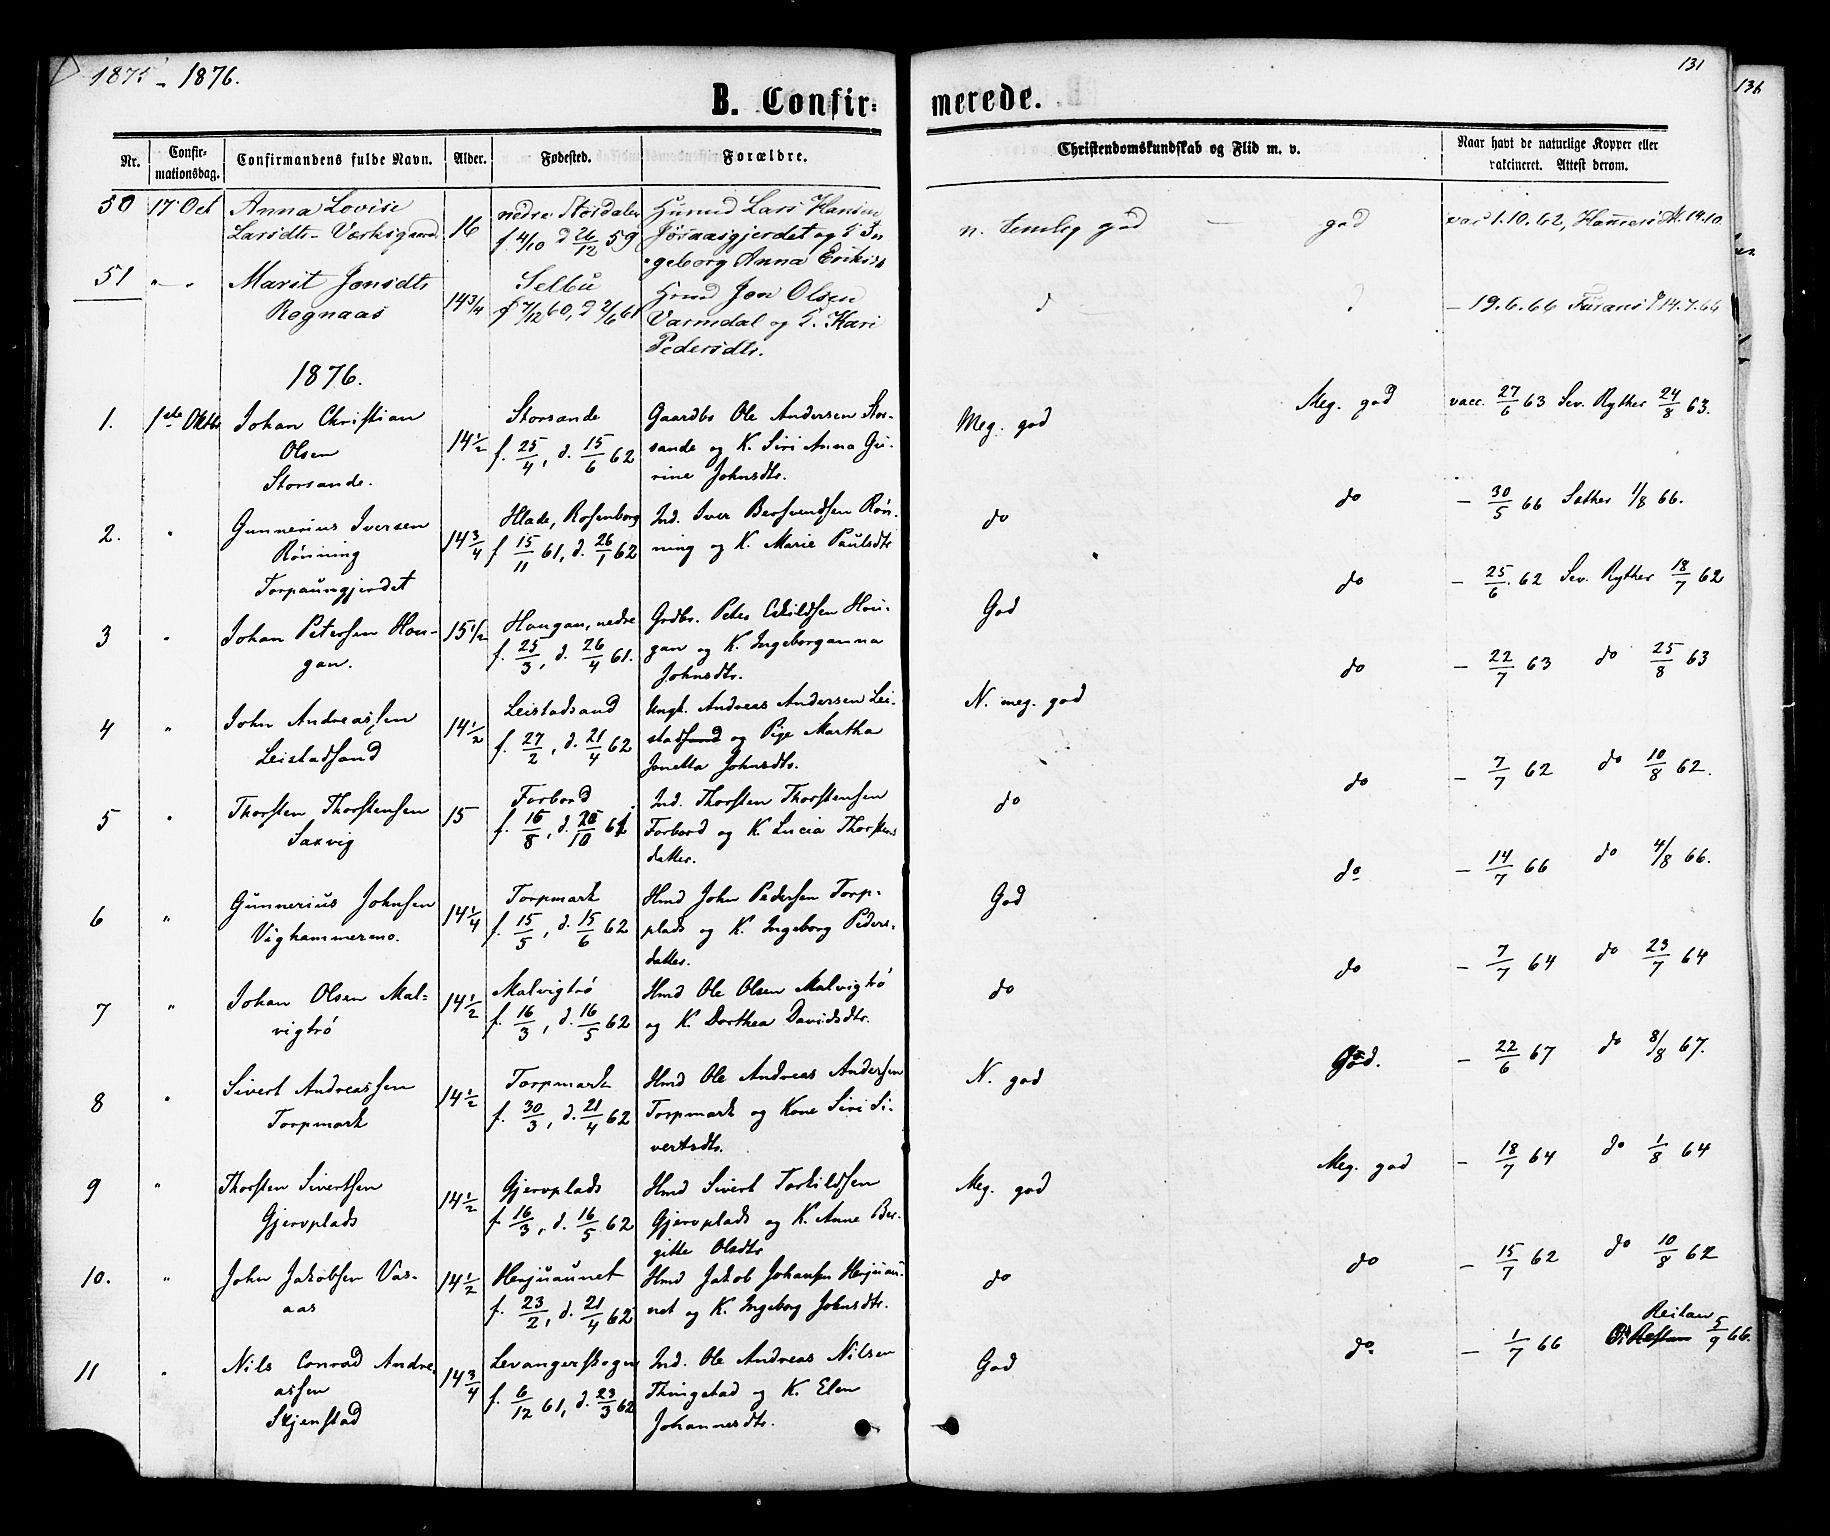 1875 - 1876.
131
136
B. Confirmerede.
Nr. Confirmationsdag. Confirmandens fulde Navn. Alder. Fødested. Forældre. Christendomskundskab og Flid m. v. Naar havt de naturlige Kopper eller vakcineret. Attest derom.
50 17 Oct Anna Lovise 16 nedre Størdalen Hunmd Lars Hansen n. temlig god god vac 1.10.62, 19.10
Larsdtr. f. 4/10 d 26/12 59 og
geborg Anna Eriksd
51 " " Marit Jonsdtr 14 3/4 Selbu Hmd Jon Olsen d d - 19.6.66 14.7.66
Rognaas f 7/12 60, d 2/6 61 Varmdal og K. Kari
Pedersdtr.
1876.
1. 1ste Oktbr Johan Christian 14 1/2 Storsande Gaardbr Ole Andersen Stor- Meg. god Meg. god vacc. 27/6 63 Sev. Ryther 24/8 63.
Olsen f. 25/4, d. 15/6 62 sande og K. Siri Anna Gu-
Storsande. rine Johnsdtr.
2. " Gunnerius Iversen 14 3/4 Hlade, Rosenborg Ind. Iver Bersvendsen Røn- do do - 30/5 66 Sæther 1/8 66.
Rønning f 15/11 61, d. 26/1 62 ning og K. Marie Paulsdtr
Torpaungjerdet
3 " Johan Petersen Hou- 15 1/2 Hougan, nedre Grdbr. Peter Eskildsen Hou- God do - 25/6. 62 Sev. Ryther 18/7 62
gan. f. 25/3, d. 26/4 61. gan og K. Ingeborganna
Johnsdtr.
4 " John Andreassen 14 1/2 Leistadsand Ungk. Andreas Andersen Lei- N. meg. god do - 22/7 63 do 25/8 63
Leistadsand f. 27/2, d. 21/4 62 stadsand og Pige Martha
Jonetta Johnsdtr.
5 " Thorsten Thorstensen 15 Forbord Ind. Thorsten Thorstensen do do - 7/7 62 do 10/8 62.
Saxvig f. 16/8, d. 20/10 61 Forbord og K. Lucia Thorstens
datter.
6 " Gunnerius Johnsen 14 1/4 Torpmark Hmd John Pedersen Torp- God do - 14/7 66 do 4/8 66.
Vighammermo. f. 15/5, d. 15/6 62 plads og K. Ingeborg Peders-
datter.
7 " Johan Olsen Mal- 14 1/2 Malvigtrø Hmd Ole Olsen Malvigtrø do do - 7/7 64 do 23/7 64
vigtrø f. 16/3, d. 16/5 62 og K. Dorthea Davidsdtr.
8 " Sivert Andreassen 14 1/2 Torpmark Hmd Ole Andreas Andersen N. god God. - 22/6 67 do 8/8 67.
Torpmark f. 30/3, d. 21/4 62 Torpmark og Kone Siri Si-
vertsdtr.
9 " Thorsten Sivertsen 14 1/2 Gjervplads Hmd Sivert Torkildsen Meg. god Meg. god - 18/7 64 do 1/8 64
Gjervplads f. 16/3, d. 16/5 62 Gjervplads og K. Anne Ber-
gitte Olsdtr
10. " John Jakobsen Vas- 14 1/2 Herjuaunet Hmd Jakob Johansen Herjuau- do do - 15/7 62 do 10/8 62
aas f. 23/2, d. 21/4 62 net og K. Ingeborg Johnsdtr.
11 " Nils Conrad Andre- 14 3/4 Levangerskogn Ind. Ole Andreas Nilsen God do - 1/7 66 Reitan 5/9 66.
assen f. 6/12 61, d. 23/3 62 Thingstad og K. Elen
Stjenstad Johannesdtr.